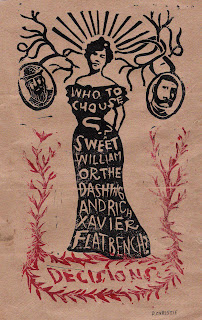 WHO TO
CHOUSE
SWEET
WILLIAM
OR THE
DASHING
AND RICH
XAVIER
FLATBENCH?
DECISIONS